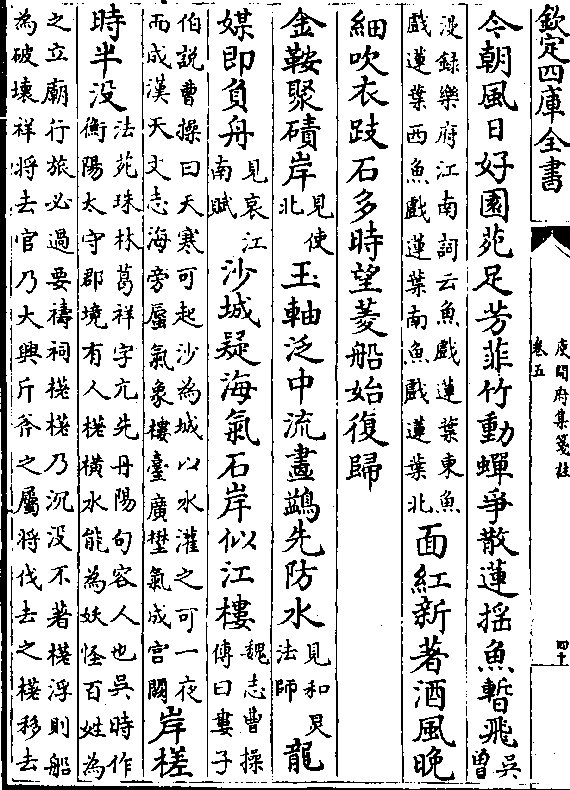 欽定四庫全書
庾開府集箋註
卷五
四十
今朝風日好園苑足芳菲竹動蟬爭散蓮揺魚暫飛吳曽
漫録樂府江南詞云魚戲蓮葉東魚
戲蓮葉西魚戲蓮葉南魚戲蓮葉北
面紅新著酒風晚
細吹衣跂石多時望菱船始復歸
金鞍聚磧岸見使北玉軸泛中流畫鷁先防水見和炅法師龍
媒即負舟見哀江南賦沙城疑海氣石岸似江樓魏志曹操傳曰婁子
伯説曹操曰天寒可起沙為城以水灌之可一夜
而成漢天文志海旁蜃氣象樓臺廣壄氣成宫闕
岸槎
時半没
法苑珠林葛祥字亢先丹陽句容人也吳時作
衡陽太守郡境有人槎横水能為妖怪百姓為
之立廟行旅必過要禱祠槎槎乃沉没不著槎浮則船
為破壊祥将去官乃大興斤斧之屬将伐去之槎移去